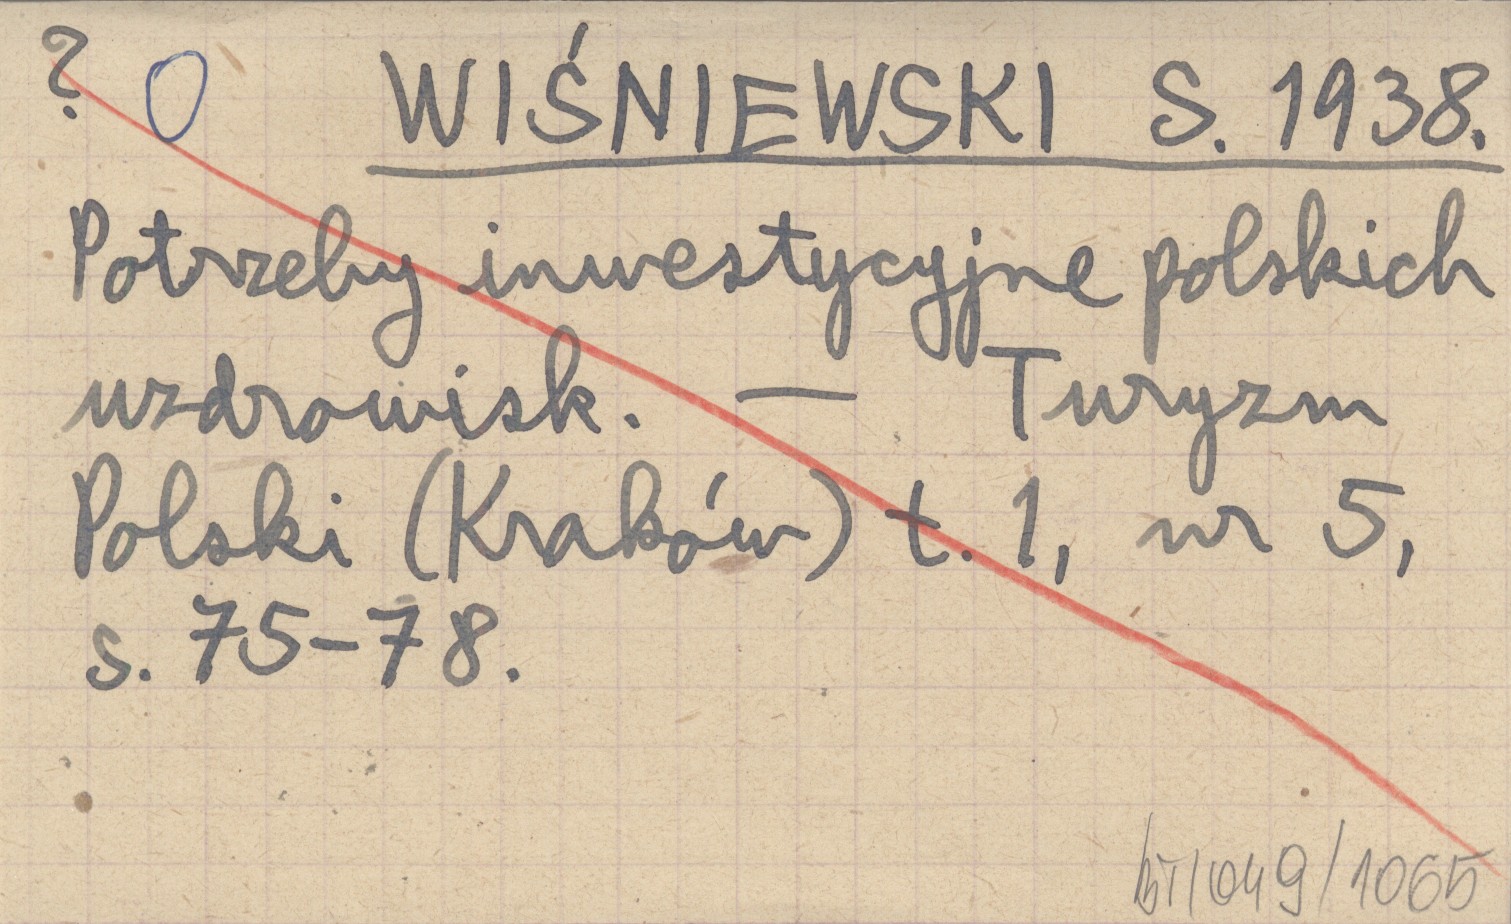 ? 0 WIŚNIEWSKI S. 1938.
Potrzeby inwestycyjne polskich
uzdrowisk. — Turyzm
Polski (Kraków) t. 1, nr 5,
s. 75-78.
/049/1065